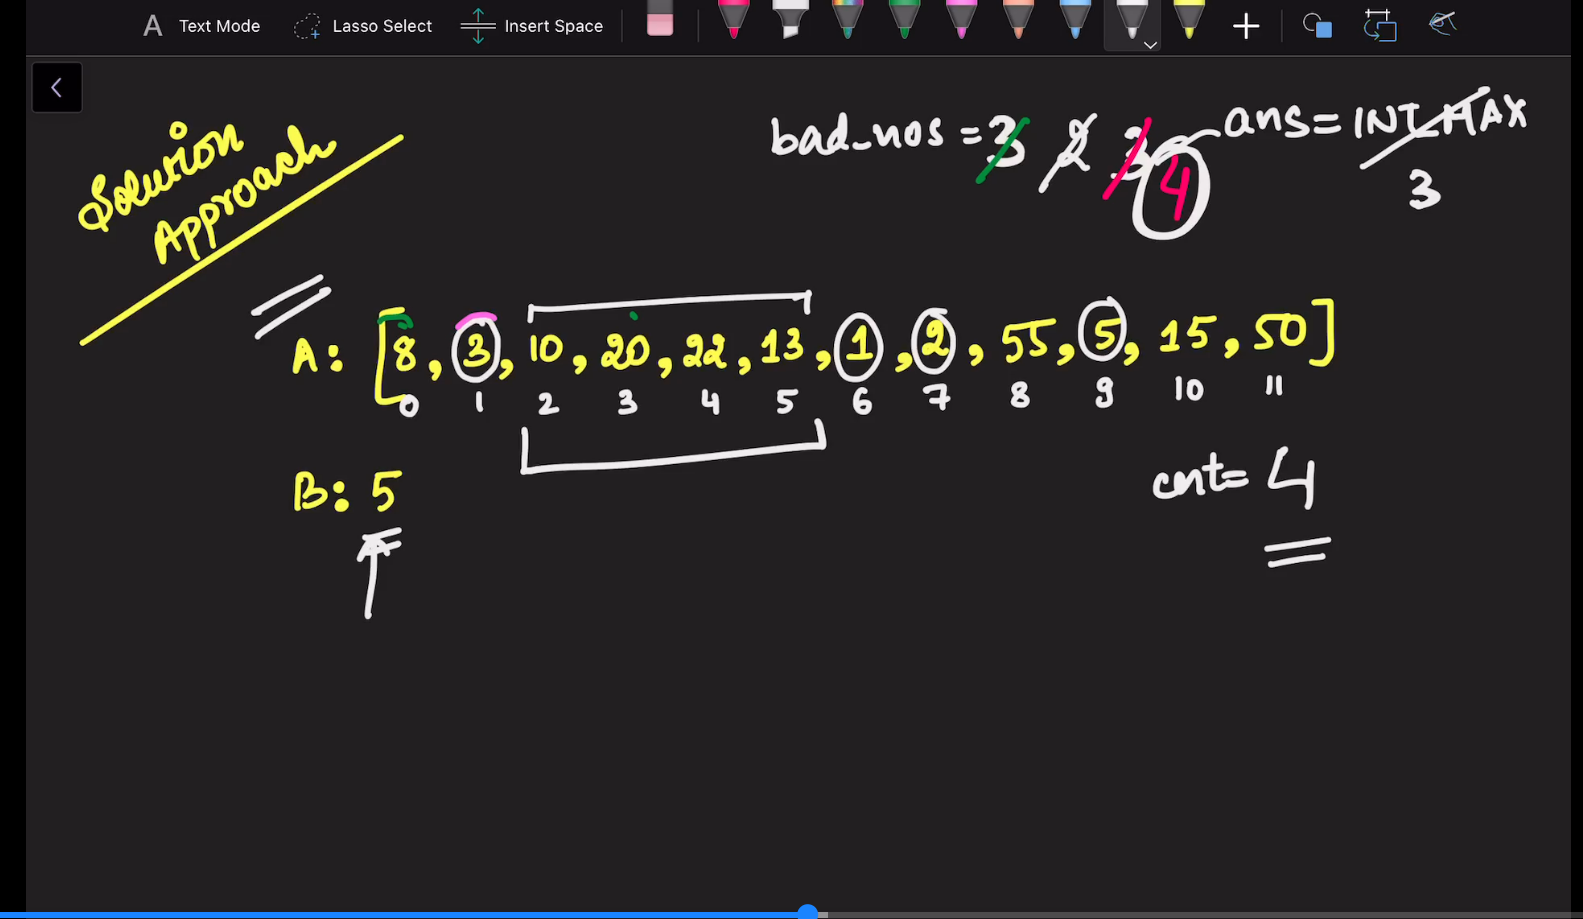 A Text Mode Lasso Select Insert Space
Solution
Approach
bad_nos = 3 2 3 4
ans = INT_MAX
3
A: [8, 3, 10, 20, 22, 13, 1, 2, 55, 5, 15, 50]
0 1 2 3 4 5 6 7 8 9 10 11
B: 5
cnt = 4